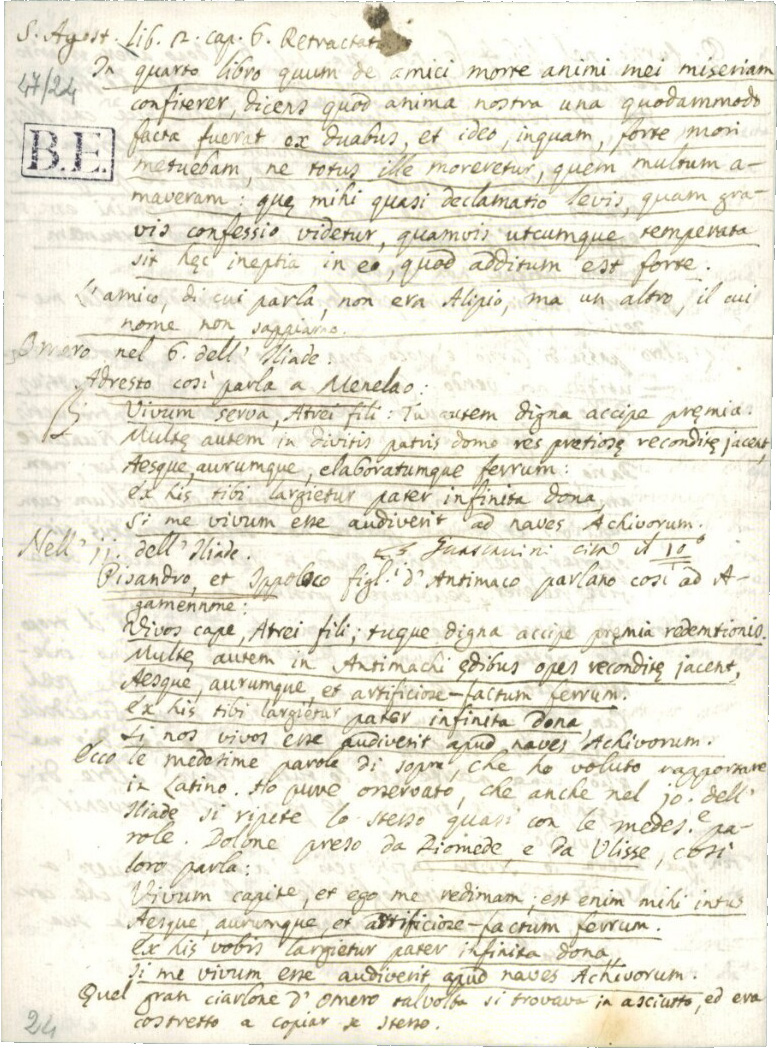 S. Agost. Lib. 2. cap. 6. Retractat.
47/24
In quarto libro quum de amici morte animi mei miseriam
confiterer, dicens quod anima nostra una quodammodo
facta fuerat ex duabus, et ideo, inquam, forte mori
B.E.
metuebam, ne totus ille moreretur, quem multum a-
maveram: quę mihi quasi declamatio levis, quam gra-
vis confessio videtur, quamvis utcumque temperata
sit hęc ineptia in eo, quod additum est forte.
L'amico, di cui parla, non era Alipio, ma un altro, il cui
nome non sappiamo.
Omero nel 6. dell' Iliade.
Adresto così parla a Menelao:
Vivum serva, Atrei fili: Tu autem digna accipe pręmia.
Multę autem in divitis patris domo res pretiosę reconditę jacent,
Aesque, aurumque, elaboratumque ferrum:
Ex his tibi largietur pater infinita dona,
Si me vivum esse audiverit ad naves Achivorum.
Nell' 11. dell' Iliade.
cita il 10°
Pisandro, et Ippoloco figl.i d'Antimaco parlano così ad A-
gamennone:
Vivos cape, Atrei fili; tuque digna accipe pręmia redemtionis.
Multę autem in Antimachi ędibus opes reconditę jacent,
Aesque, aurumque, et artificiose-factum ferrum.
Ex his tibi largietur pater infinita dona,
Si nos vivos esse audiverit apud naves Achivorum.
Ecco le medesime parole di sopra, che ho voluto rapportare
in Latino. Ho pure osservato, che anche nel 10. dell'
Iliade si ripete lo stesso quasi con le medes.e pa-
role. Dolone preso da Diomede, e da Ulisse, così
loro parla:
Vivum capite, et ego me redimam; est enim mihi intus
Aesque, aurumque, et artificiose-factum ferrum.
Ex his vobis largietur pater infinita dona,
Si me vivum esse audiverit apud naves Achivorum.
Quel gran ciarlone d'Omero talvolta si trovava in asciutto, ed era
costretto a copiar se stesso.
24